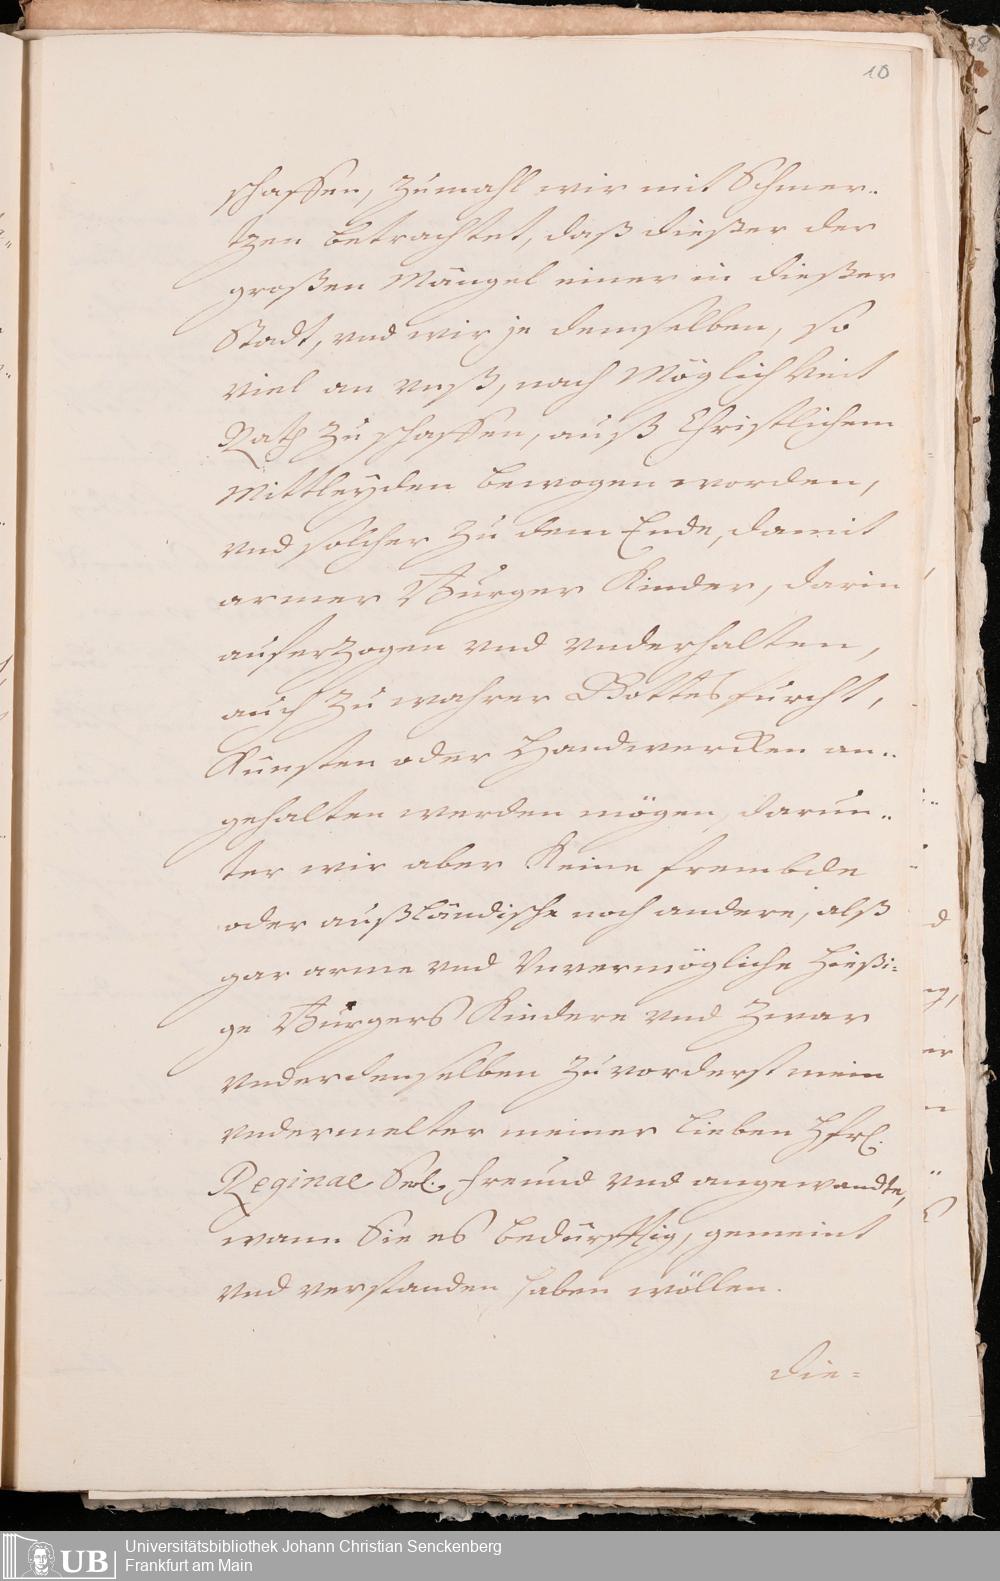 10
schaffen, Zumahl wir mit Schmer-
tzen betrachtet, daß dießer der
großen Mängel einer in dießer
Stadt, vnd wir je demselben, so
viel an vnß, nach Möglichkeit
Rath zu schaffen, auß Christlichem
Mittleyden bewogen worden,
vnd solcher zu dem Ende, damit
armer Burger Kinder, darin
auferzogen vnd vnderhalten,
auch zu wahrer Gottesfurcht,
Künsten oder Handwercken an-
gehalten werden mögen, darun-
ter wir aber Keine frembde
oder außländische noch andere, alß
gar arme vnd Vnvermögliche hießi=
ge Burgers Kindere vnd Zwar
vnder denselben Zuvorderst mein
vndermelter meiner Lieben Hfrl.
Reginae Seel. Freund vnd angewandte,
wann Sie es bedürfftig, gemeint
vnd verstanden haben wöllen.
Die=
UB
Universitätsbibliothek Johann Christian Senckenberg
Frankfurt am Main